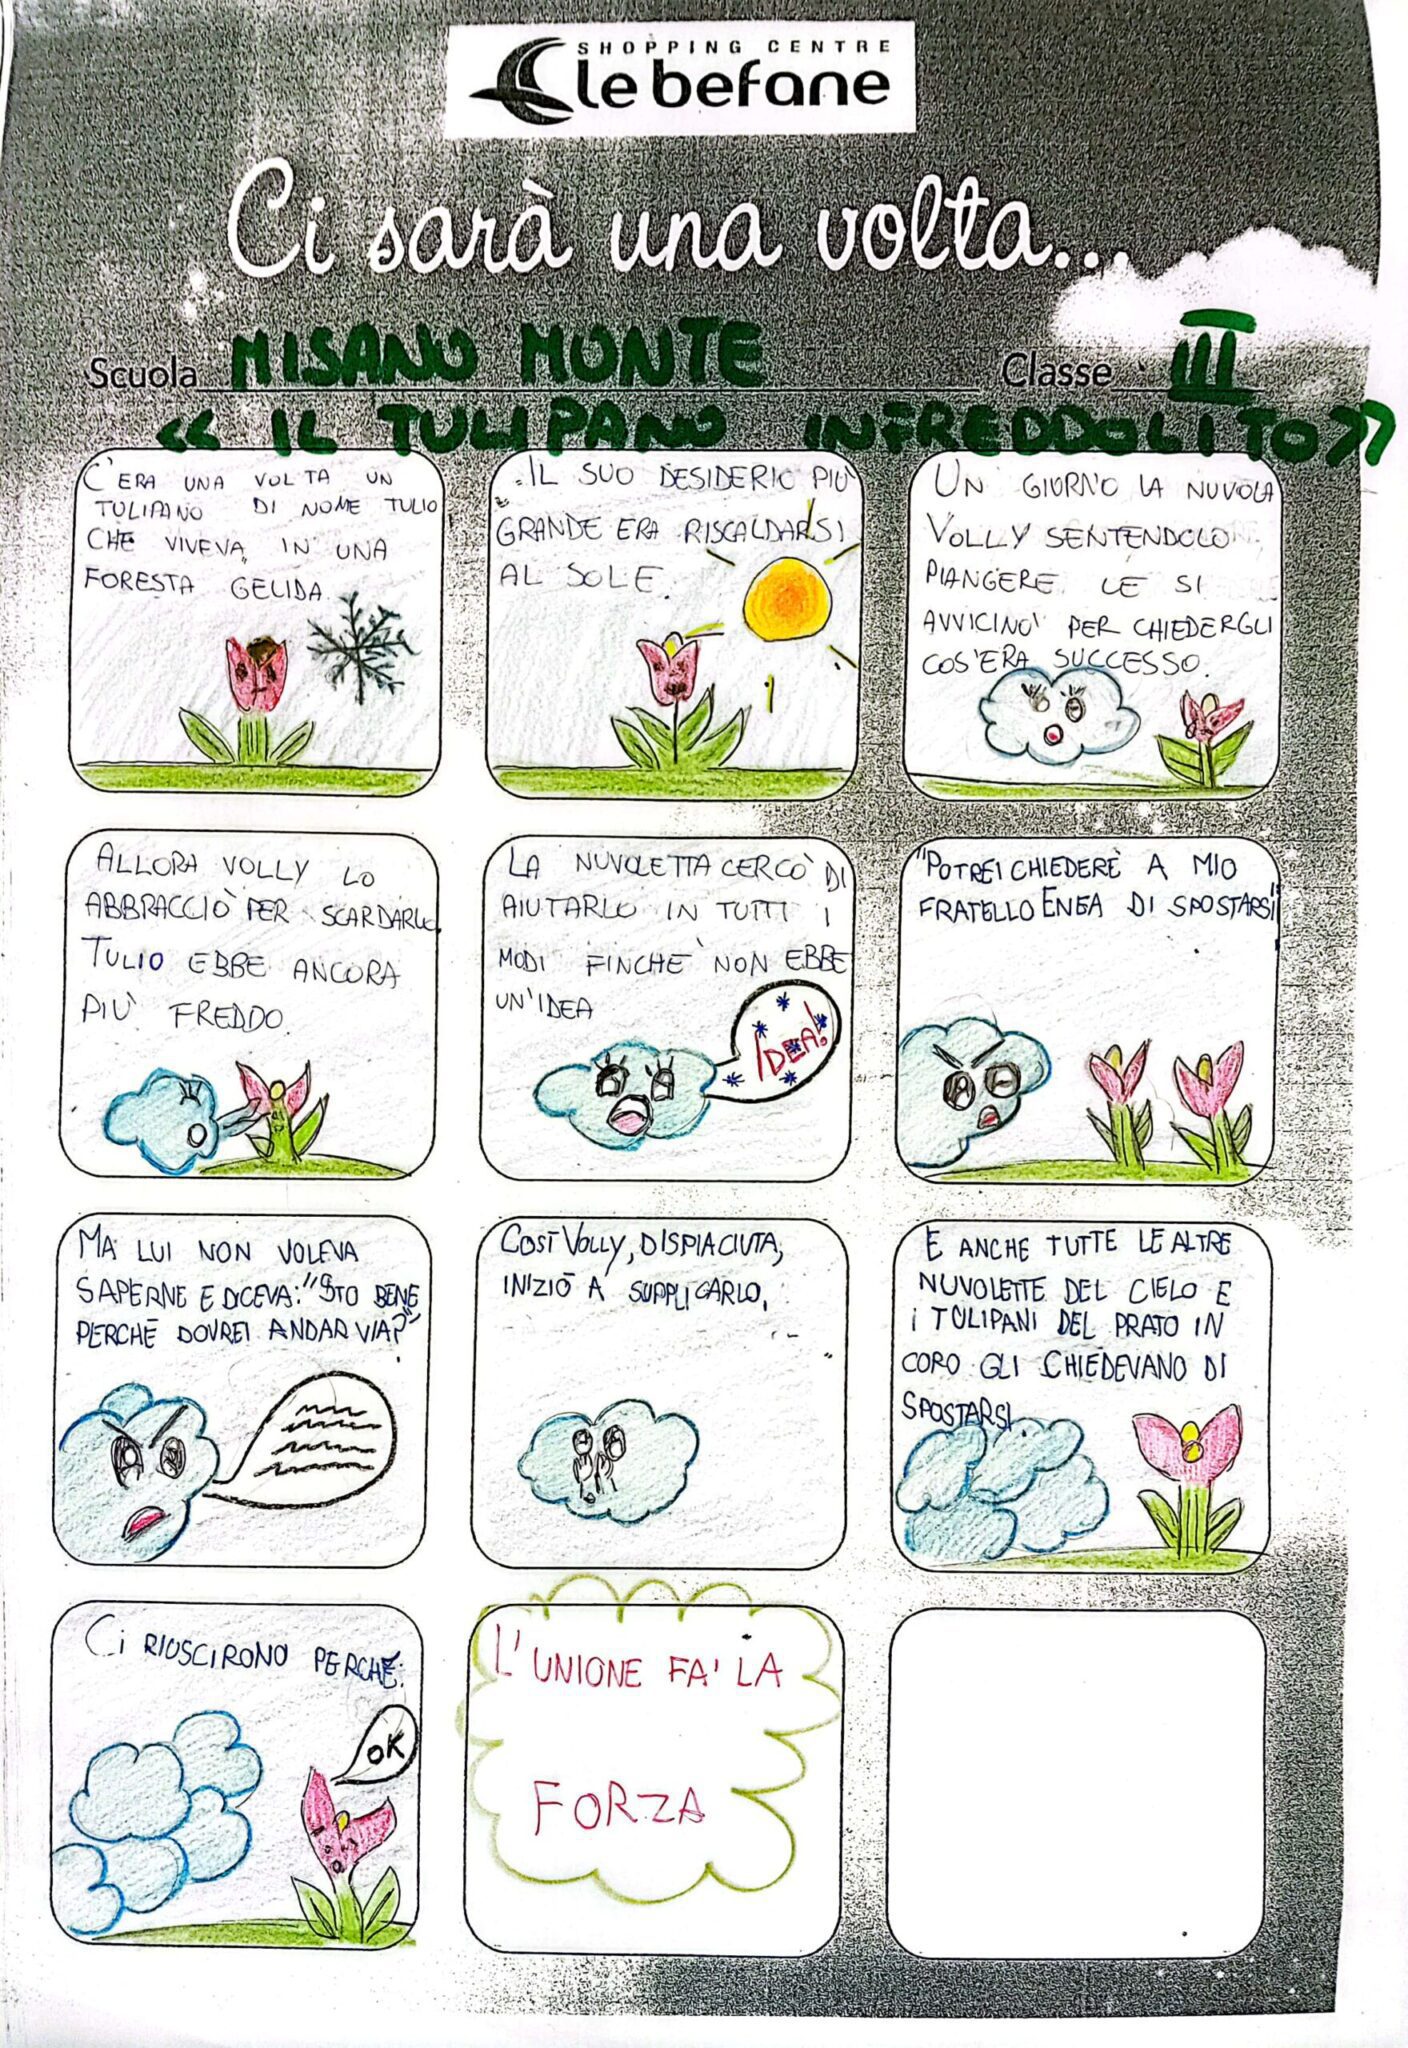 SHOPPING CENTRE
le befane
Ci sarà una volta...
Scuola MISANO MONTE Classe III
<< IL TULIPANO INFREDDOLITO>>
C'ERA UNA VOLTA UN
TULIPANO DI NOME TULIO
CHE VIVEVA IN UNA
FORESTA GELIDA.
IL SUO DESIDERIO PIU'
GRANDE ERA RISCALDARSI
AL SOLE.
UN GIORNO LA NUVOLA
VOLLY SENTENDOLO
PIANGERE LE SI
AVVICINO' PER CHIEDERGLI
COS'ERA SUCCESSO.
ALLORA VOLLY LO
ABBRACCIÒ PER SCARDARLO.
TULIO EBBE ANCORA
PIÙ FREDDO.
LA NUVOLETTA CERCÒ DI
AIUTARLO IN TUTTI I
MODI FINCHÈ NON EBBE
UN'IDEA
IDEA!
"POTREI CHIEDERE A MIO
FRATELLO ENEA DI SPOSTARSI"
MA LUI NON VOLEVA
SAPERNE E DICEVA: "STO BENE
PERCHÈ DOVREI ANDAR VIA?"
COSÌ VOLLY, DISPIACIUTA,
INIZIÒ A SUPPLICARLO.
E ANCHE TUTTE LE ALTRE
NUVOLETTE DEL CIELO E
I TULIPANI DEL PRATO IN
CORO GLI CHIEDEVANO DI
SPOSTARSI.
CI RIUSCIRONO PERCHÈ:
OK
L'UNIONE FA' LA
FORZA